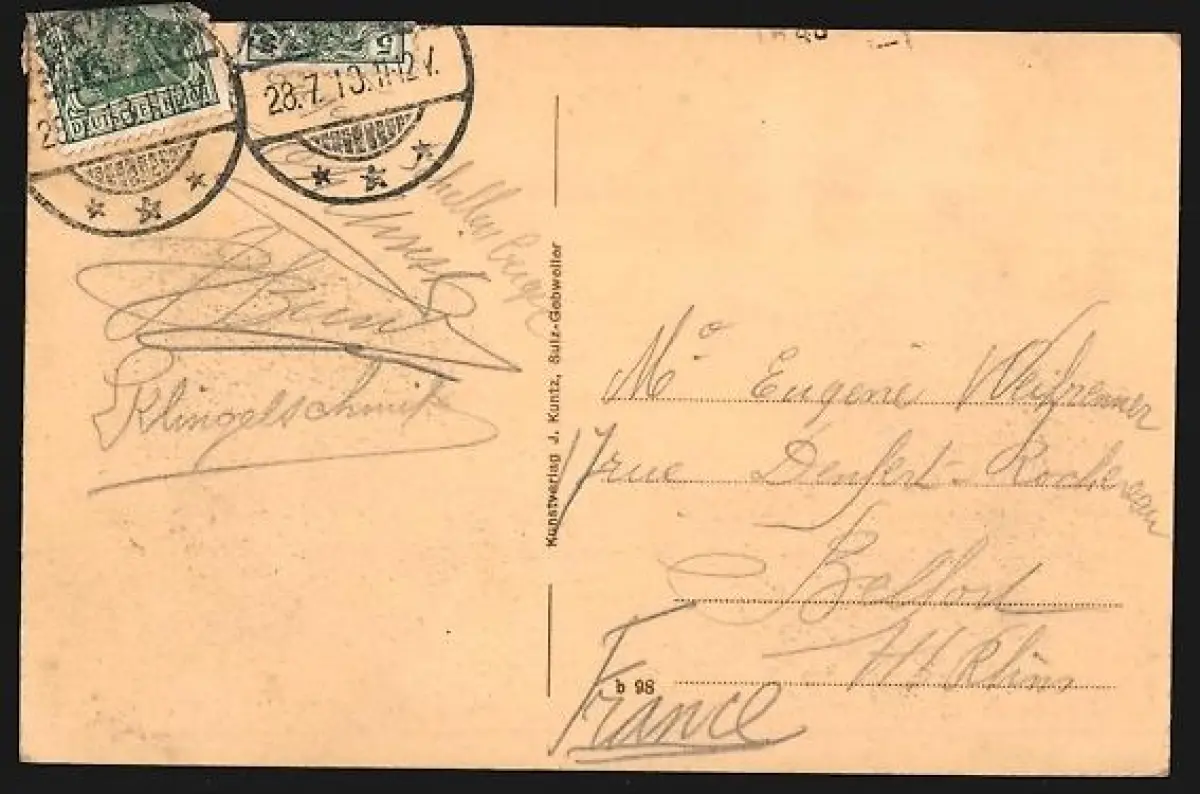 DEUTSCHES REICH
5
28.7.10.11-12 V.
Klingelschmit
Kunstverlag J. Kuntz, Sulz-Gebweiler
Mr Eugène Weifrenner
17 rue Denfert-Rochereau
Belfort
Ht Rhin
b 98
France